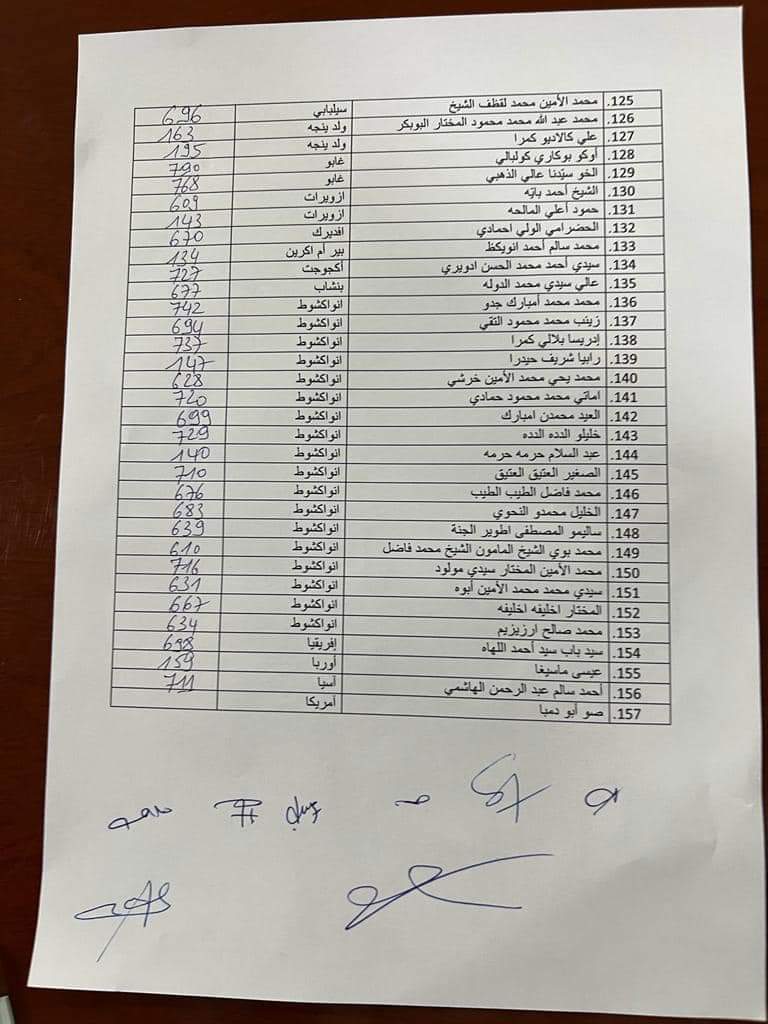 125. محمد الأمين محمد لقظف الشيخ سيلبابي 696
126. محمد عبد الله محمد محمود المختار البوبكر ولد ينجه 163
127. علي كالاديو كمرا ولد ينجه 195
128. أوكو بوكاري كولبالي غابو 790
129. الخو سيّدنا عالي الذهبي غابو 768
130. الشيخ أحمد بايّه ازويرات 609
131. حمود أعلي المالحه ازويرات 143
132. الحضرامي الولي احمادي افديرك 670
133. محمد سالم أحمد انويكظ بير أم اكرين 134
134. سيدي أحمد محمد الحسن ادويري أكجوجت 727
135. عالي سيدي محمد الدوله بنشاب 677
136. محمد محمد أمبارك جدو انواكشوط 742
137. زينب محمد محمود التقي انواكشوط 694
138. إدريسا بلالي كمرا انواكشوط 737
139. رابيا شريف حيدرا انواكشوط 147
140. محمد يحي محمد الأمين خرشي انواكشوط 628
141. اماتي محمد محمود حمادي انواكشوط 720
142. العيد محمدن امبارك انواكشوط 699
143. خليلو الدده الدده انواكشوط 729
144. عبد السلام حرمه حرمه انواكشوط 140
145. الصغير العتيق العتيق انواكشوط 710
146. محمد فاضل الطيب الطيب انواكشوط 676
147. الخليل محمدو النحوي انواكشوط 683
148. ساليمو المصطفى اطوير الجنة انواكشوط 639
149. محمد بوي الشيخ المامون الشيخ محمد فاضل انواكشوط 610
150. محمد الأمين المختار سيدي مولود انواكشوط 716
151. سيدي محمد محمد الأمين أبوه انواكشوط 631
152. المختار اخليفه اخليفه انواكشوط 667
153. محمد صالح ارزيزيم انواكشوط 634
154. سيد باب سيد أحمد اللهاه إفريقيا 698
155. عيسى ماسيغا أوربا 159
156. أحمد سالم عبد الرحمن الهاشمي آسيا 711
157. صو أبو دمبا آمريكا